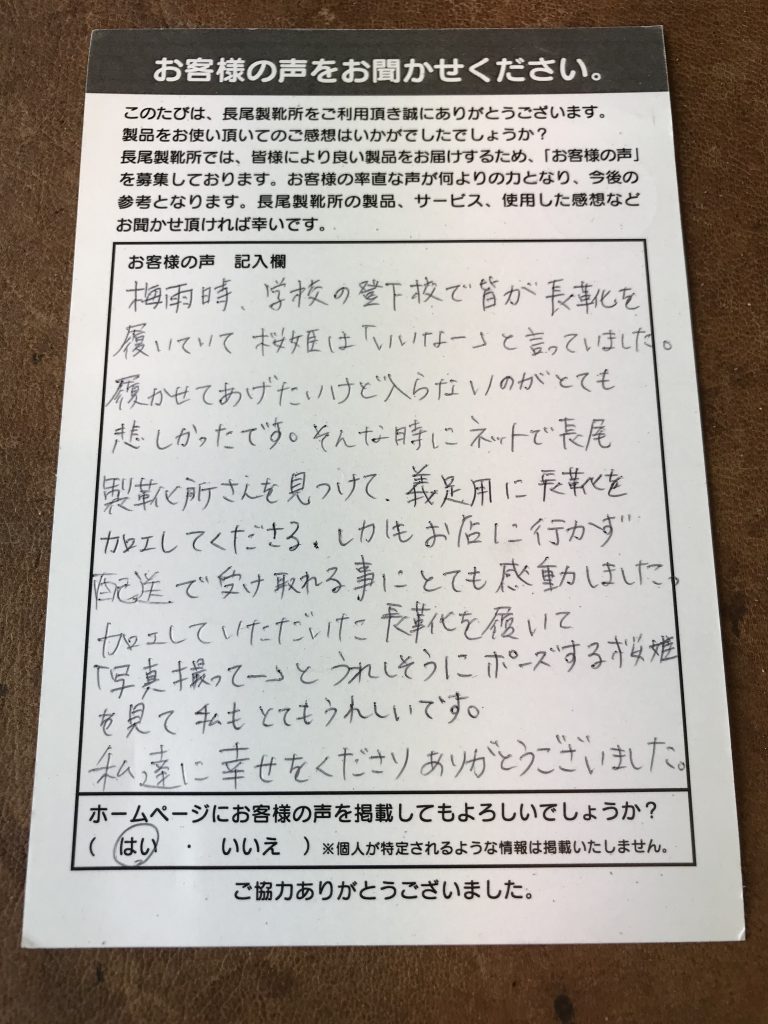 お客様の声をお聞かせください。
このたびは、長尾製靴所をご利用頂き誠にありがとうございます。
製品をお使い頂いてのご感想はいかがでしたでしょうか？
長尾製靴所では、皆様により良い製品をお届けするため、「お客様の声」
を募集しております。お客様の率直な声が何よりの力となり、今後の
参考となります。長尾製靴所の製品、サービス、使用した感想など
お聞かせ頂ければ幸いです。
お客様の声　記入欄
梅雨時、学校の登下校で皆が長靴を
履いていて桜姫は「いいなー」と言っていました。
履かせてあげたいけど入らないのがとても
悲しかったです。そんな時にネットで長尾
製靴所さんを見つけて、義足用に長靴を
加工してくださる、しかもお店に行かず
配送で受け取れる事にとても感動しました。
加工していただいた長靴を履いて
「写真撮ってー」とうれしそうにポーズする桜姫
を見て私もとてもうれしいです。
私達に幸せをくださりありがとうございました。
ホームページにお客様の声を掲載してもよろしいでしょうか？
（　はい　・　いいえ　）※個人が特定されるような情報は掲載いたしません。
ご協力ありがとうございました。